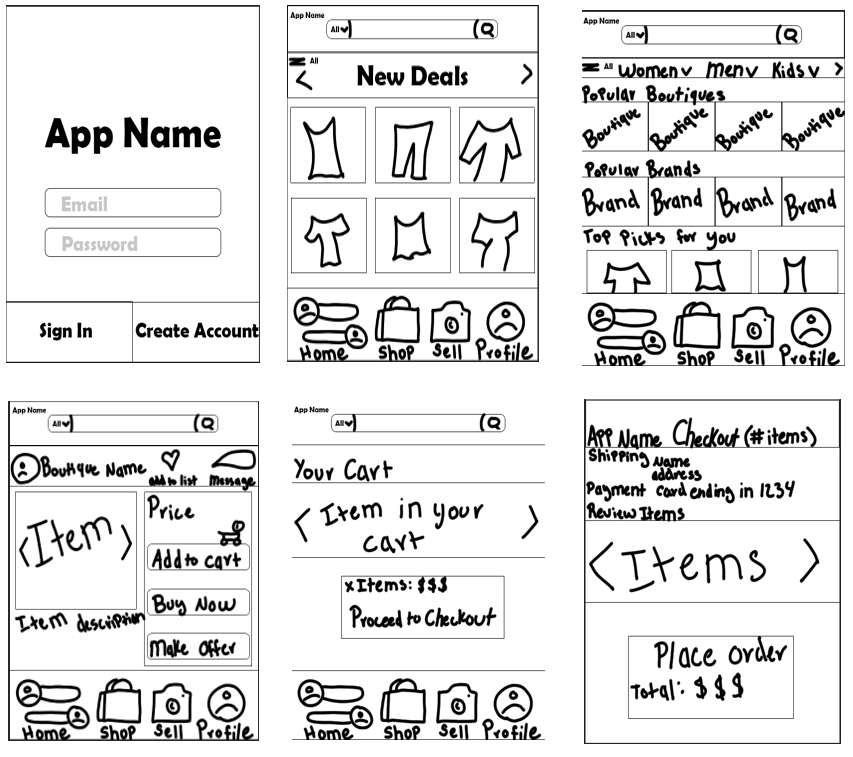 App Name
Email
Password
Sign In
Create Account
App Name
All
All
New Deals
Home Shop Sell Profile
App Name
All
All Women Men Kids
Popular Boutiques
Boutique Boutique Boutique Boutique
Popular Brands
Brand Brand Brand Brand
Top Picks for you
Home Shop Sell Profile
App Name
All
Boutique Name
add to list
Message
Item
Price
Add to cart
Buy Now
Make Offer
Item description
Home Shop Sell Profile
App Name
All
Your Cart
Item in your
cart
x Items: $$$
Proceed to Checkout
Home Shop Sell Profile
App Name Checkout (# items)
Shipping Name
address
Payment Card ending in 1234
Review Items
Items
Place order
Total: $ $ $